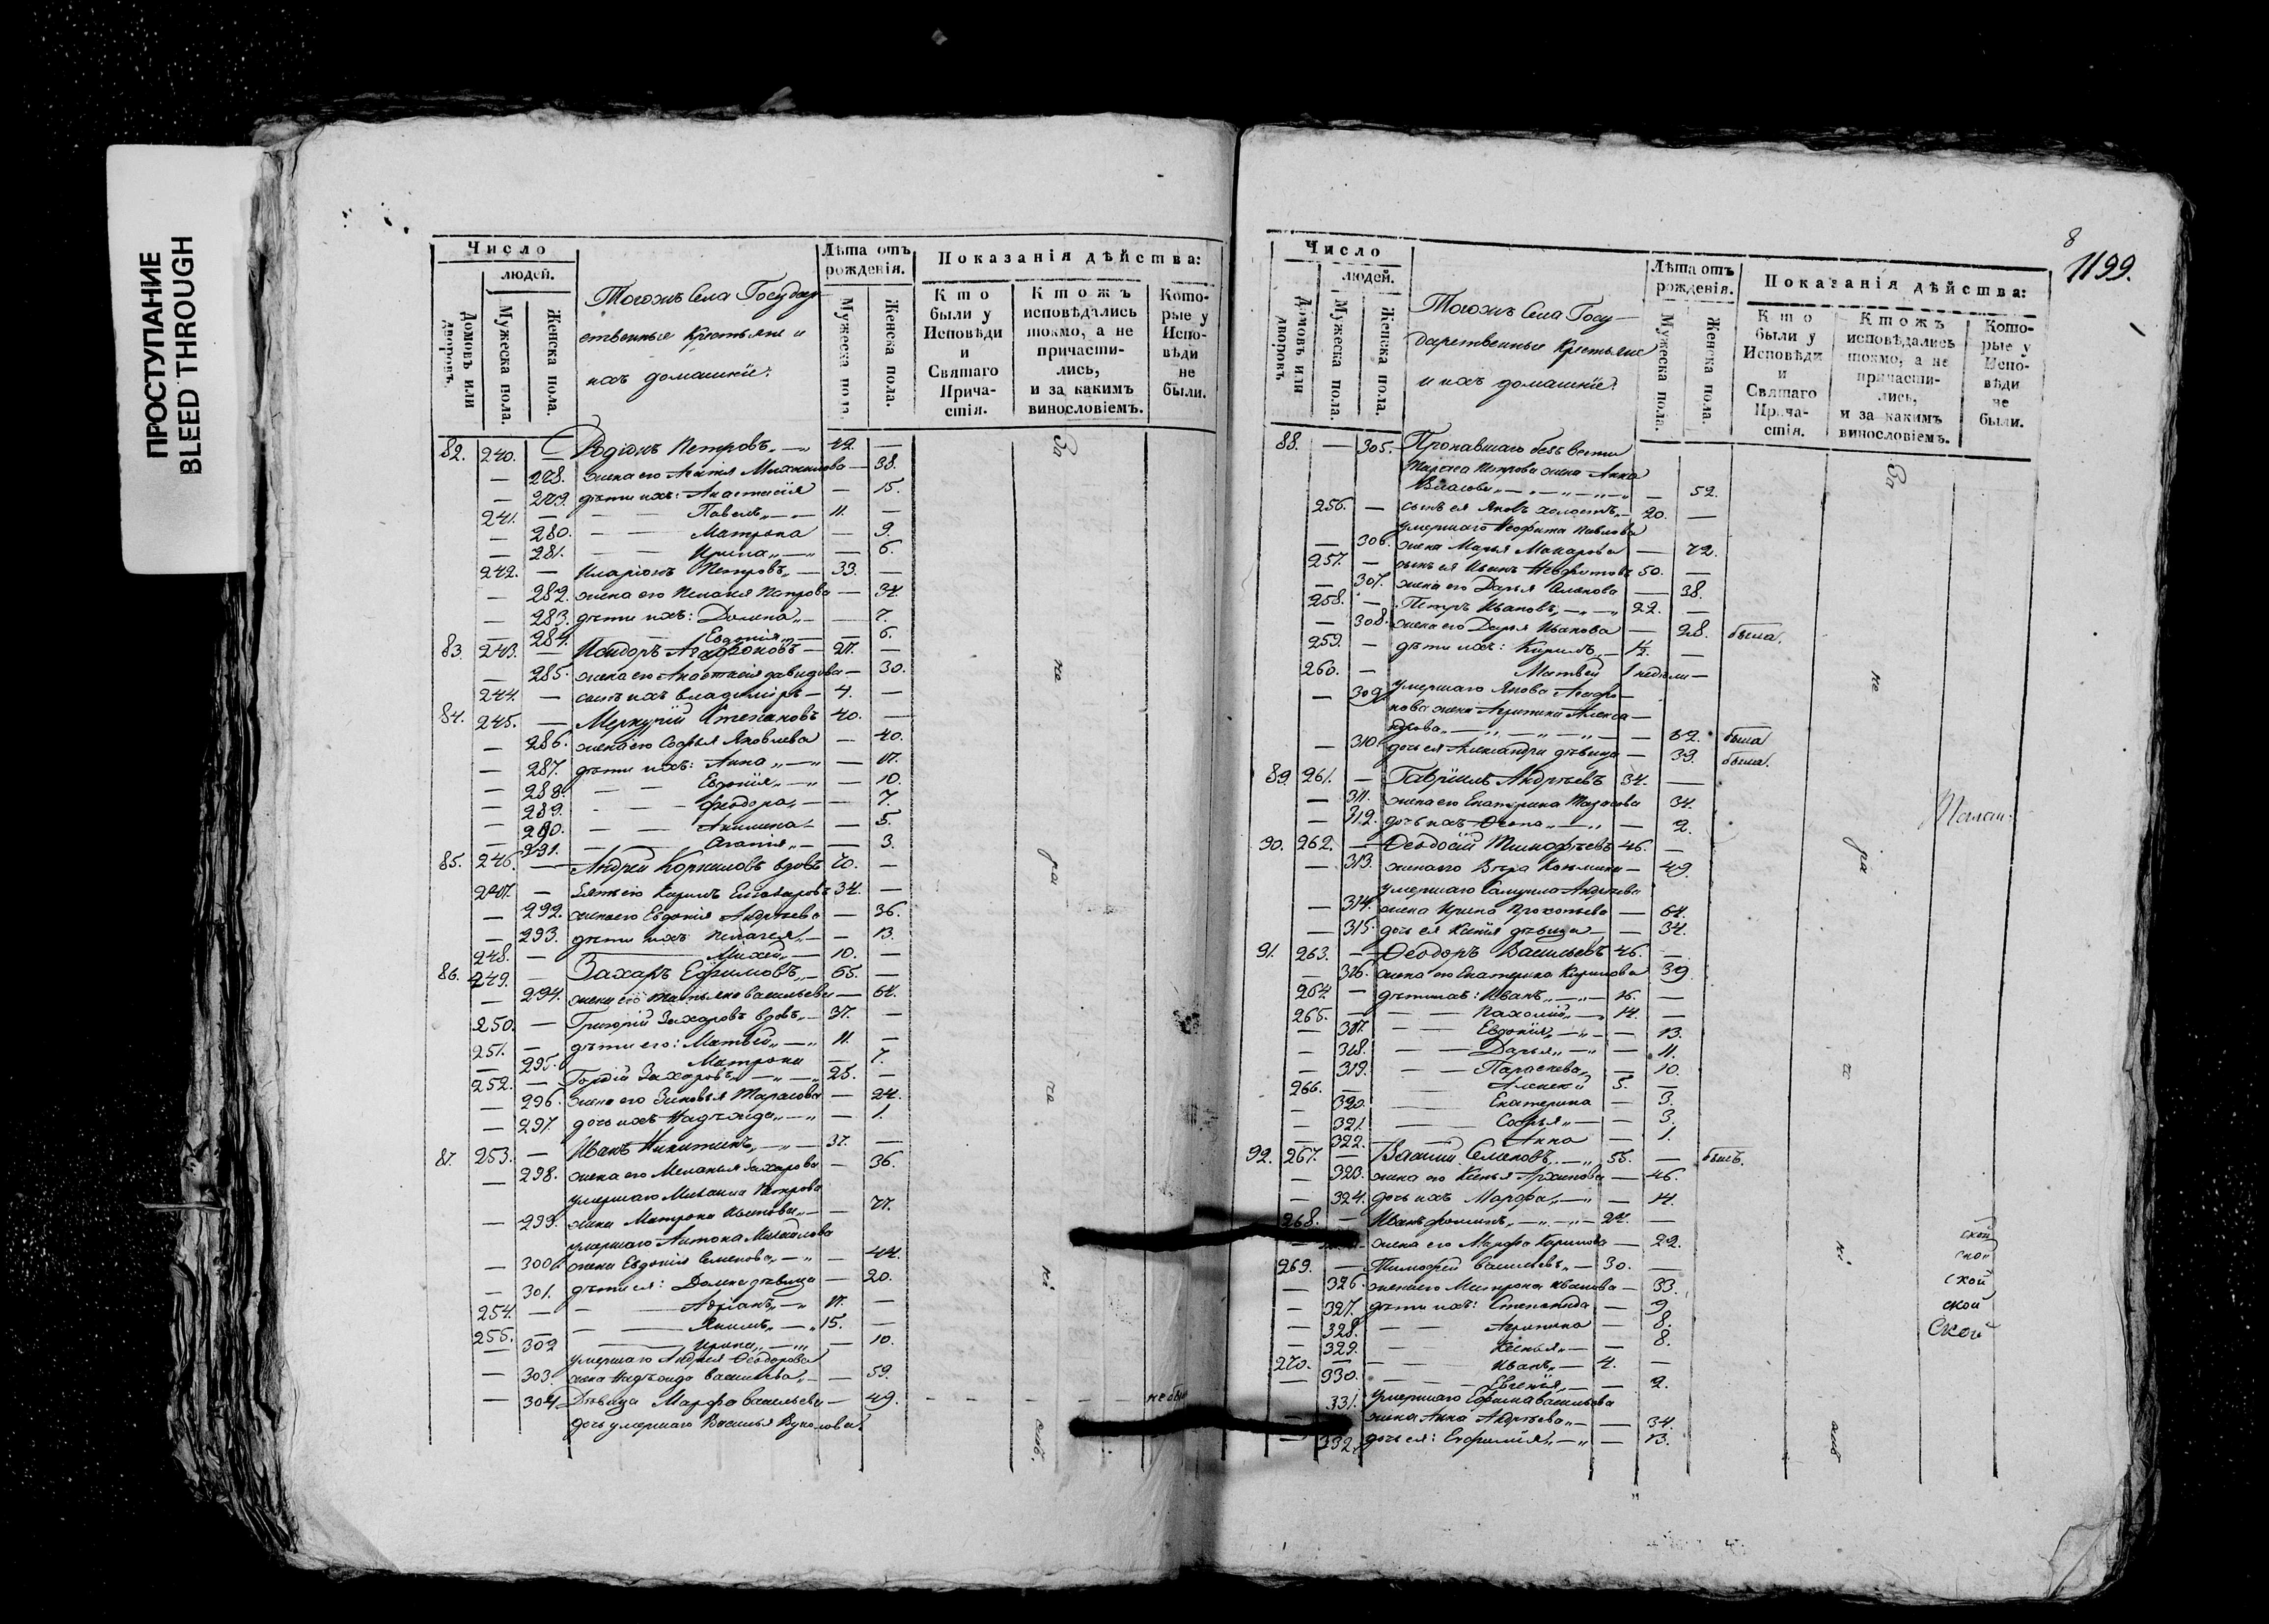 ПРОСТУПАНИЕ
BLEED THROUGH
Число
людей.
Домовъ или дворовъ.
Мужеска пола.
Женска пола.
Тогожъ Села Государ-
ственные Крестьяне и
ихъ домашніе:
Лѣта отъ рожденія.
Мужеска пола
Женска пола.
Показанія дѣйства:
Кто были у Исповѣди и Святаго Причастія.
Ктожъ исповѣдались токмо, а не причастились, и за какимъ винословіемъ.
Которые у Исповѣди не были.
82. 240. — Родіонъ Петровъ — 42. —
— 278. жена его Агафія Михайлова — 38.
— 279. дѣти ихъ: Анастасія — 15.
241. — Павелъ — 11. —
— 280. Матрона — 9.
— 281. Ирина — 6.
242. — Иларіонъ Петровъ — 33. —
— 282. жена его Пелагія Петрова — 34.
— 283. дѣти ихъ: Домна — 7.
— 284. Евдокія — 6.
83. 243. — Исидоръ Агафоновъ — 27. —
— 285. жена его Анастасія Давидова — 30.
244. — сынъ ихъ Владиміръ — 4. —
84. 245. — Меркурій Степановъ 40. —
— 286. жена его Софья Яковлева — 40.
— 287. дѣти ихъ: Анна — 17.
— 288. Евдокія — 10.
— 289. Феодора — 7.
— 290. Акилина — 5.
— 291. Агапія — 3.
85. 246. — Андрей Корниловъ вдовъ 70. —
247. — Зять его Кирилъ 34. —
— 292. жена его Евдокія Андреева — 36.
— 293. дѣти ихъ Пелагея — 13.
248. — Михей — 10. —
86. 249. — Захаръ Ефимовъ — 65. —
— 294. жена его Татьяна Васильева — 64.
250. — Григорій Захаровъ вдовъ — 37. —
251. — дѣти его: Матвей — 11. —
— 295. Матрона — 7.
252. — Гордій Захаровъ — 25. —
— 296. жена его Зиновья Тарасова — 24.
— 297. дочь ихъ Надежда — 1.
87. 253. — Иванъ Никитинъ — 37. —
— 298. жена его Меланья Захарова — 36.
умершаго Михаила Петрова
— 299. жена Матрона Иванова — 77.
умершаго Антона Михайлова
— 300. жена Евдокія Семенова — 44.
— 301. дѣти ея: Домна дѣвица — 20.
254. — Адріанъ — 17. —
255. — Якимъ — 15. —
— 302 Ирина — 10.
умершаго Андрея Феодорова
— 303. жена Надежда Васильева — 59.
— 304 Дѣвица Марфа Васильева — 49. — — — — не бы
дочь умершаго Василья Вуколова.
За
не
ра
че
ні
емъ.
8
1199.
Число
людей.
Домовъ или дворовъ
Мужеска пола.
Женска пола.
Тогожъ Села Госу-
дарственные Крестьяне
и ихъ домашніе:
Лѣта отъ рожденія.
Мужеска пола.
Женска пола.
Показанія дѣйства:
Кто были у Исповѣди и Святаго Причастія.
Ктожъ исповѣдались токмо, а не причастились, и за какимъ винословіемъ.
Которые у Исповѣди не были.
88. — 305. Пропавшаго безъ вести
Тараса Петрова жена Анна
Власова — 52.
256. — сынъ ея Яковъ холостъ — 20. —
умершаго Неофита Павлова
— 306. жена Марья Макарова — 72.
257. — сынъ ея Иванъ Неофитовъ 50. —
— 307. жена его Дарья Семенова — 38.
258. — Петръ Ивановъ — 22. —
— 308. жена его Дарья Иванова — 28. была.
259. — дѣти ихъ: Кирилъ —
260. — Матвей 1 недели —
— 309. умершаго Якова Агафо-
нова жена Агрипина Алекса-
ндрова — 82. была
— 310. дочь ея Александра дѣвица — 39. была.
89 261. — Гавріилъ Андреевъ 34. —
— 311. жена его Екатерина Тарасова 34.
— 312. дочь ихъ Фекла — 2.
90. 262. — Феодосій Тимофеевъ 46. —
— 313. жена его Вера Козьмина — 49.
умершаго Самуила Андреева
— 314. жена Ирина Прокопьева — 64.
— 315. дочь ея Ксенія дѣвица — 34.
91. 263. — Феодоръ Васильевъ 46. —
— 316. жена его Екатерина Кирилова 39.
264. — дѣти ихъ: Иванъ — 16. —
265. — Пахомій — 14. —
— 317. Евдокія — 13.
— 318. Дарья — 11.
— 319. Параскева — 10.
266. — Алексей 5. —
— 320. Екатерина — 3.
— 321. Софья — 3.
— 322. Анна — 1.
92. 267. — Василій Семеновъ — 55. — былъ.
— 323. жена его Ксенья Архипова — 46.
— 324. дочь ихъ Марфа — 14.
268. — Иванъ Фоминъ — 24. —
жена его Марфа Кирилова — 22.
269. — Тимофей Васильевъ — 30. —
— 326. жена его Матрона Иванова — 33.
— 327. дѣти ихъ: Степанида — 9.
— 328. Агрипина — 8.
— 329. Ксенья — 8.
270. — Иванъ — 4. —
— 330. Евгенія — 2.
— 331. умершаго Ефима Васильева
жена Анна Андреева — 34.
— 332. дочь ея: Евфимія — 13.
За
не
ра
че
ні
емъ
ской
ской
ской
ской
Ской